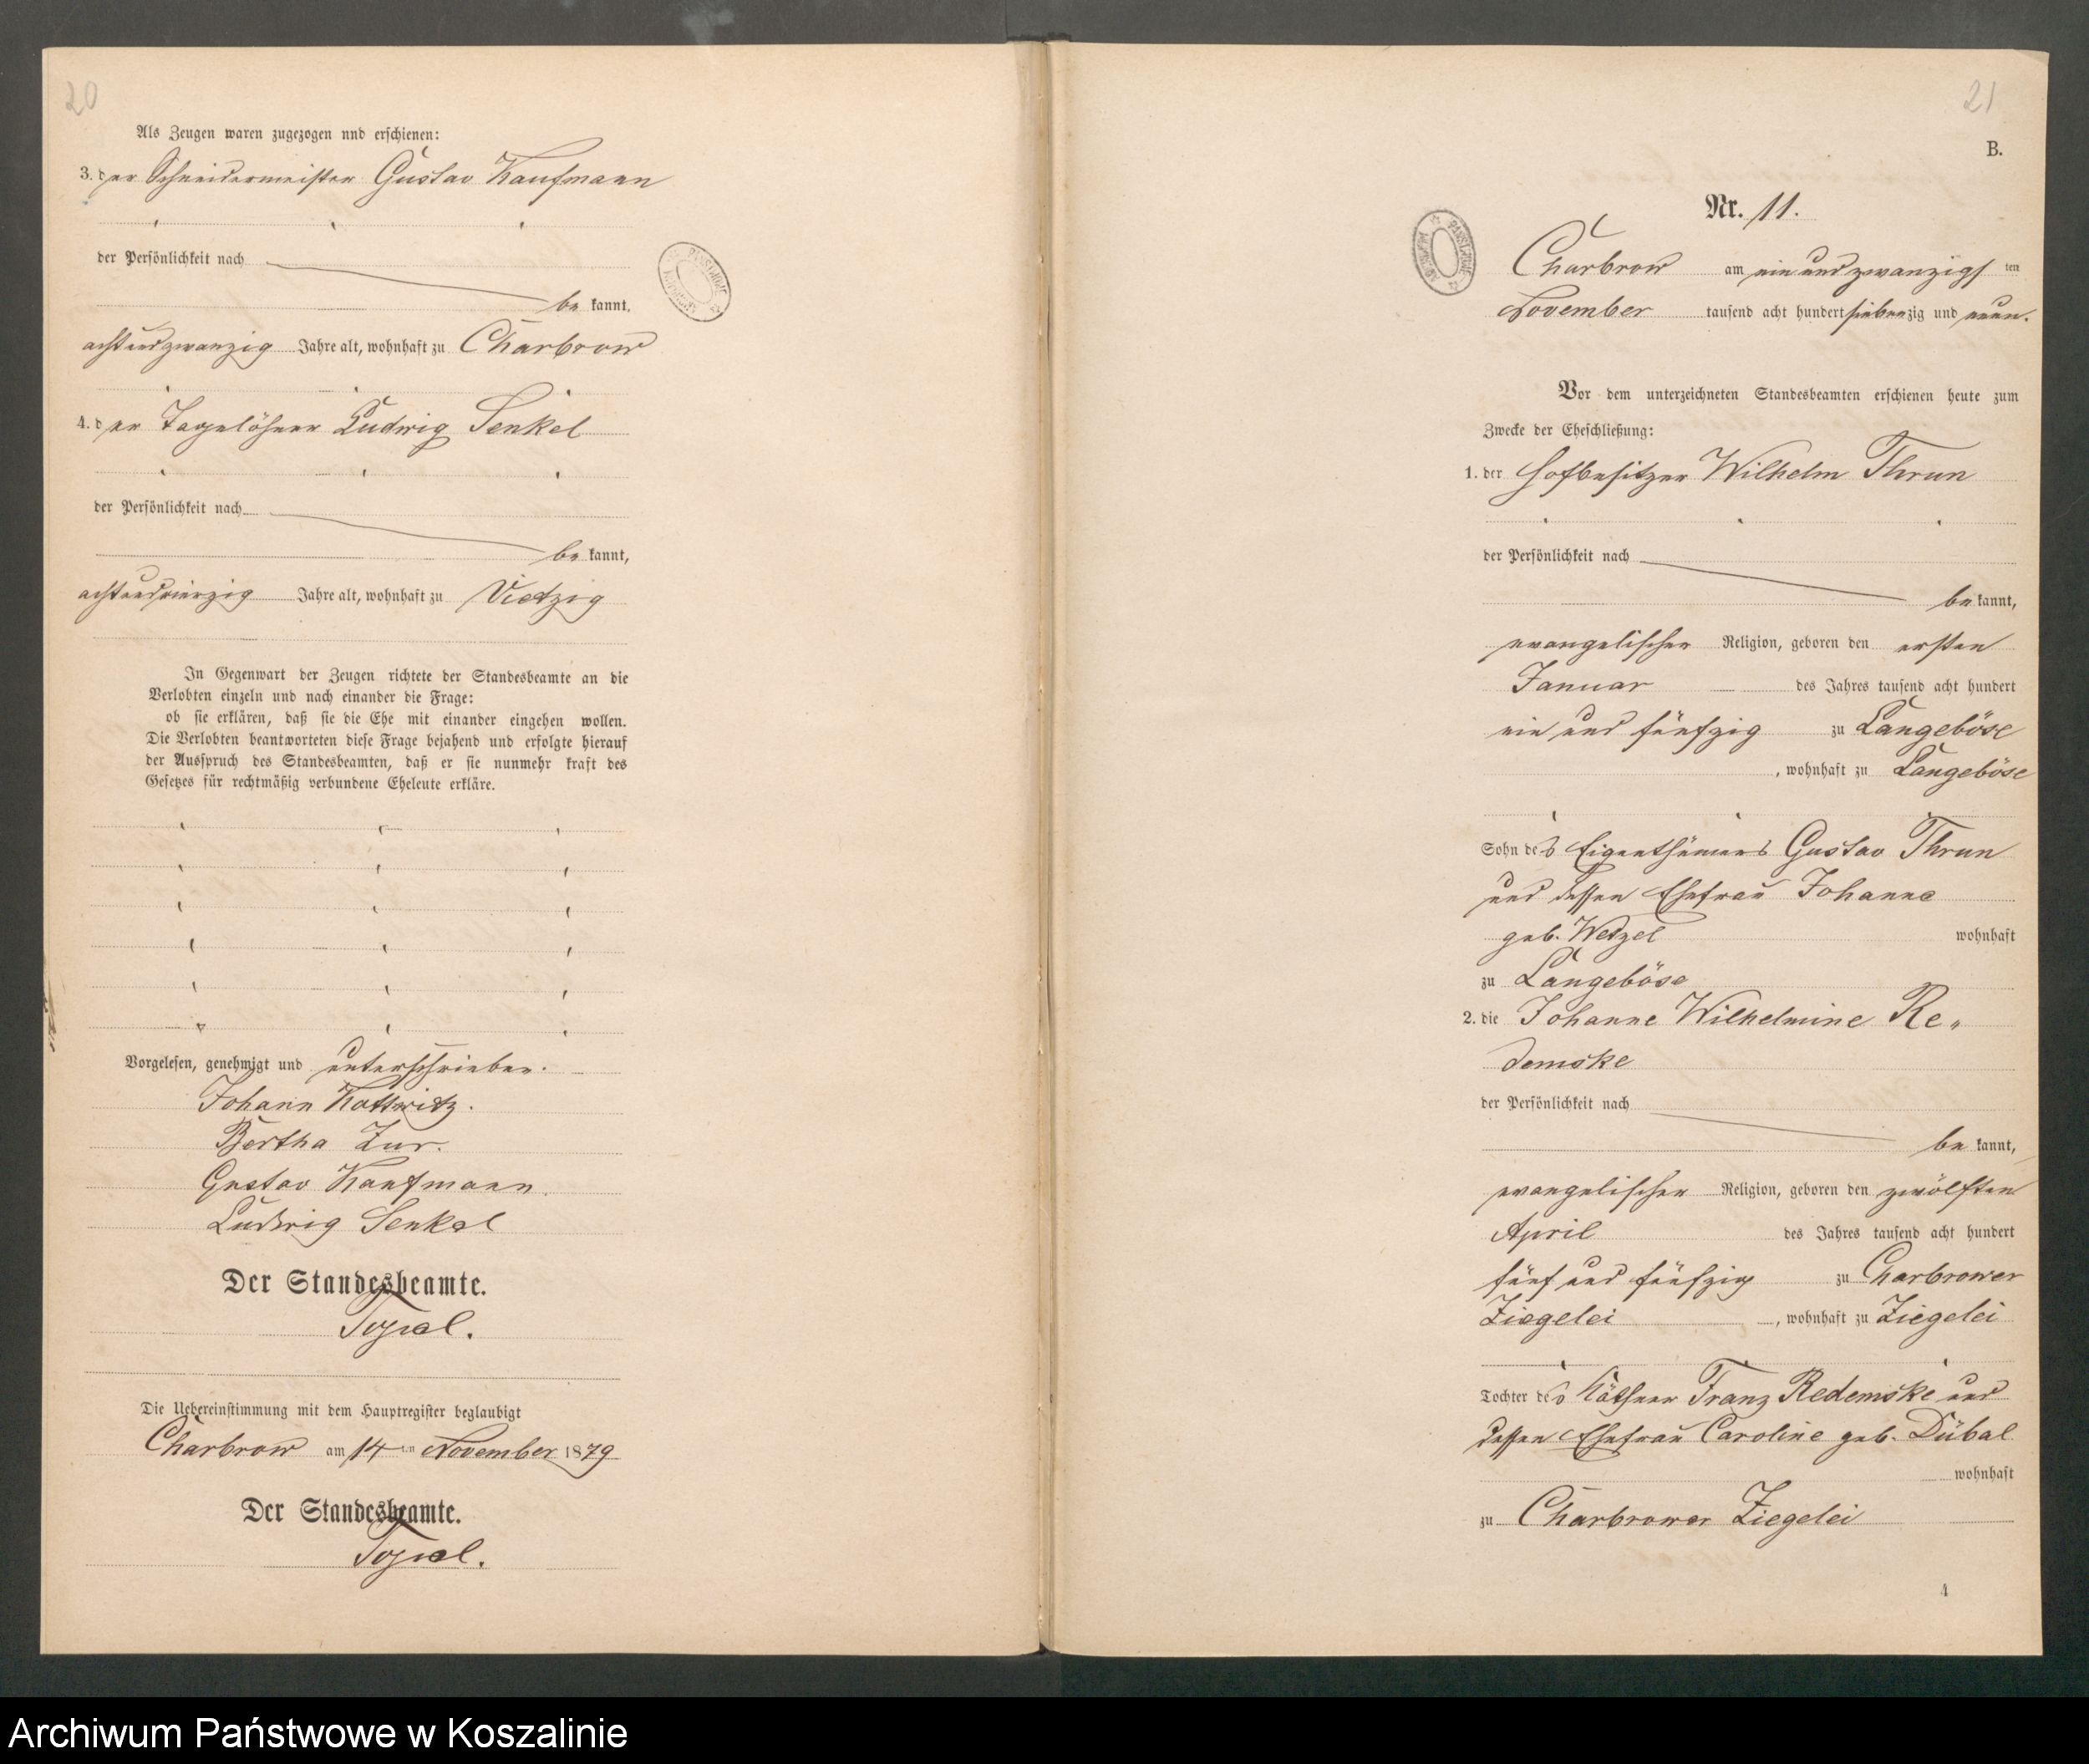 20
Als Zeugen waren zugezogen nnd erschienen:
3. der Schneidermeister Gustav Kaufmann
der Persönlichkeit nach
be kannt,
achtundzwanzig Jahre alt, wohnhaft zu Charbrow
4. der Tagelöhner Ludwig Senkel
der Persönlichkeit nach
be kannt,
achtundvierzig Jahre alt, wohnhaft zu Vietzig
In Gegenwart der Zeugen richtete der Standesbeamte an die
Verlobten einzeln und nach einander die Frage:
ob sie erklären, daß sie die Ehe mit einander eingehen wollen.
Die Verlobten beantworteten diese Frage bejahend und erfolgte hierauf
der Ausspruch des Standesbeamten, daß er sie nunmehr kraft des
Gesetzes für rechtmäßig verbundene Eheleute erkläre.
Vorgelesen, genehmigt und unterschrieben.
Johann Kottwitz.
Bertha Zur.
Gustav Kaufmann.
Ludwig Senkel
Der Standesbeamte.
Die Uebereinstimmung mit dem Hauptregister beglaubigt
Charbrow am 14 ten November 1879
Der Standesbeamte.
21
B.
Nr. 11.
Charbrow am ein und zwanzigs ten
November tausend acht hundert siebenzig und neun.
Vor dem unterzeichneten Standesbeamten erschienen heute zum
Zwecke der Eheschließung:
1. der Hofbesitzer Wilhelm Thrun
der Persönlichkeit nach
be kannt,
evangelischer Religion, geboren den ersten
Januar des Jahres tausend acht hundert
ein und fünfzig zu Langeböse
, wohnhaft zu Langeböse
Sohn des Eigenthümers Gustav Thrun
und dessen Ehefrau Johanne
geb. Wetzel wohnhaft
zu Langeböse
2. die Johanne Wilhelmine Re„
demske
der Persönlichkeit nach
be kannt,
evangelischer Religion, geboren den zwölften
April des Jahres tausend acht hundert
fünf und fünfzig zu Charbrower
Ziegelei , wohnhaft zu Ziegelei
Tochter des Käthner Franz Redemske und
dessen Ehefrau Caroline geb. Dübal
wohnhaft
zu Charbrower Ziegelei
4
Archiwum Państwowe w Koszalinie